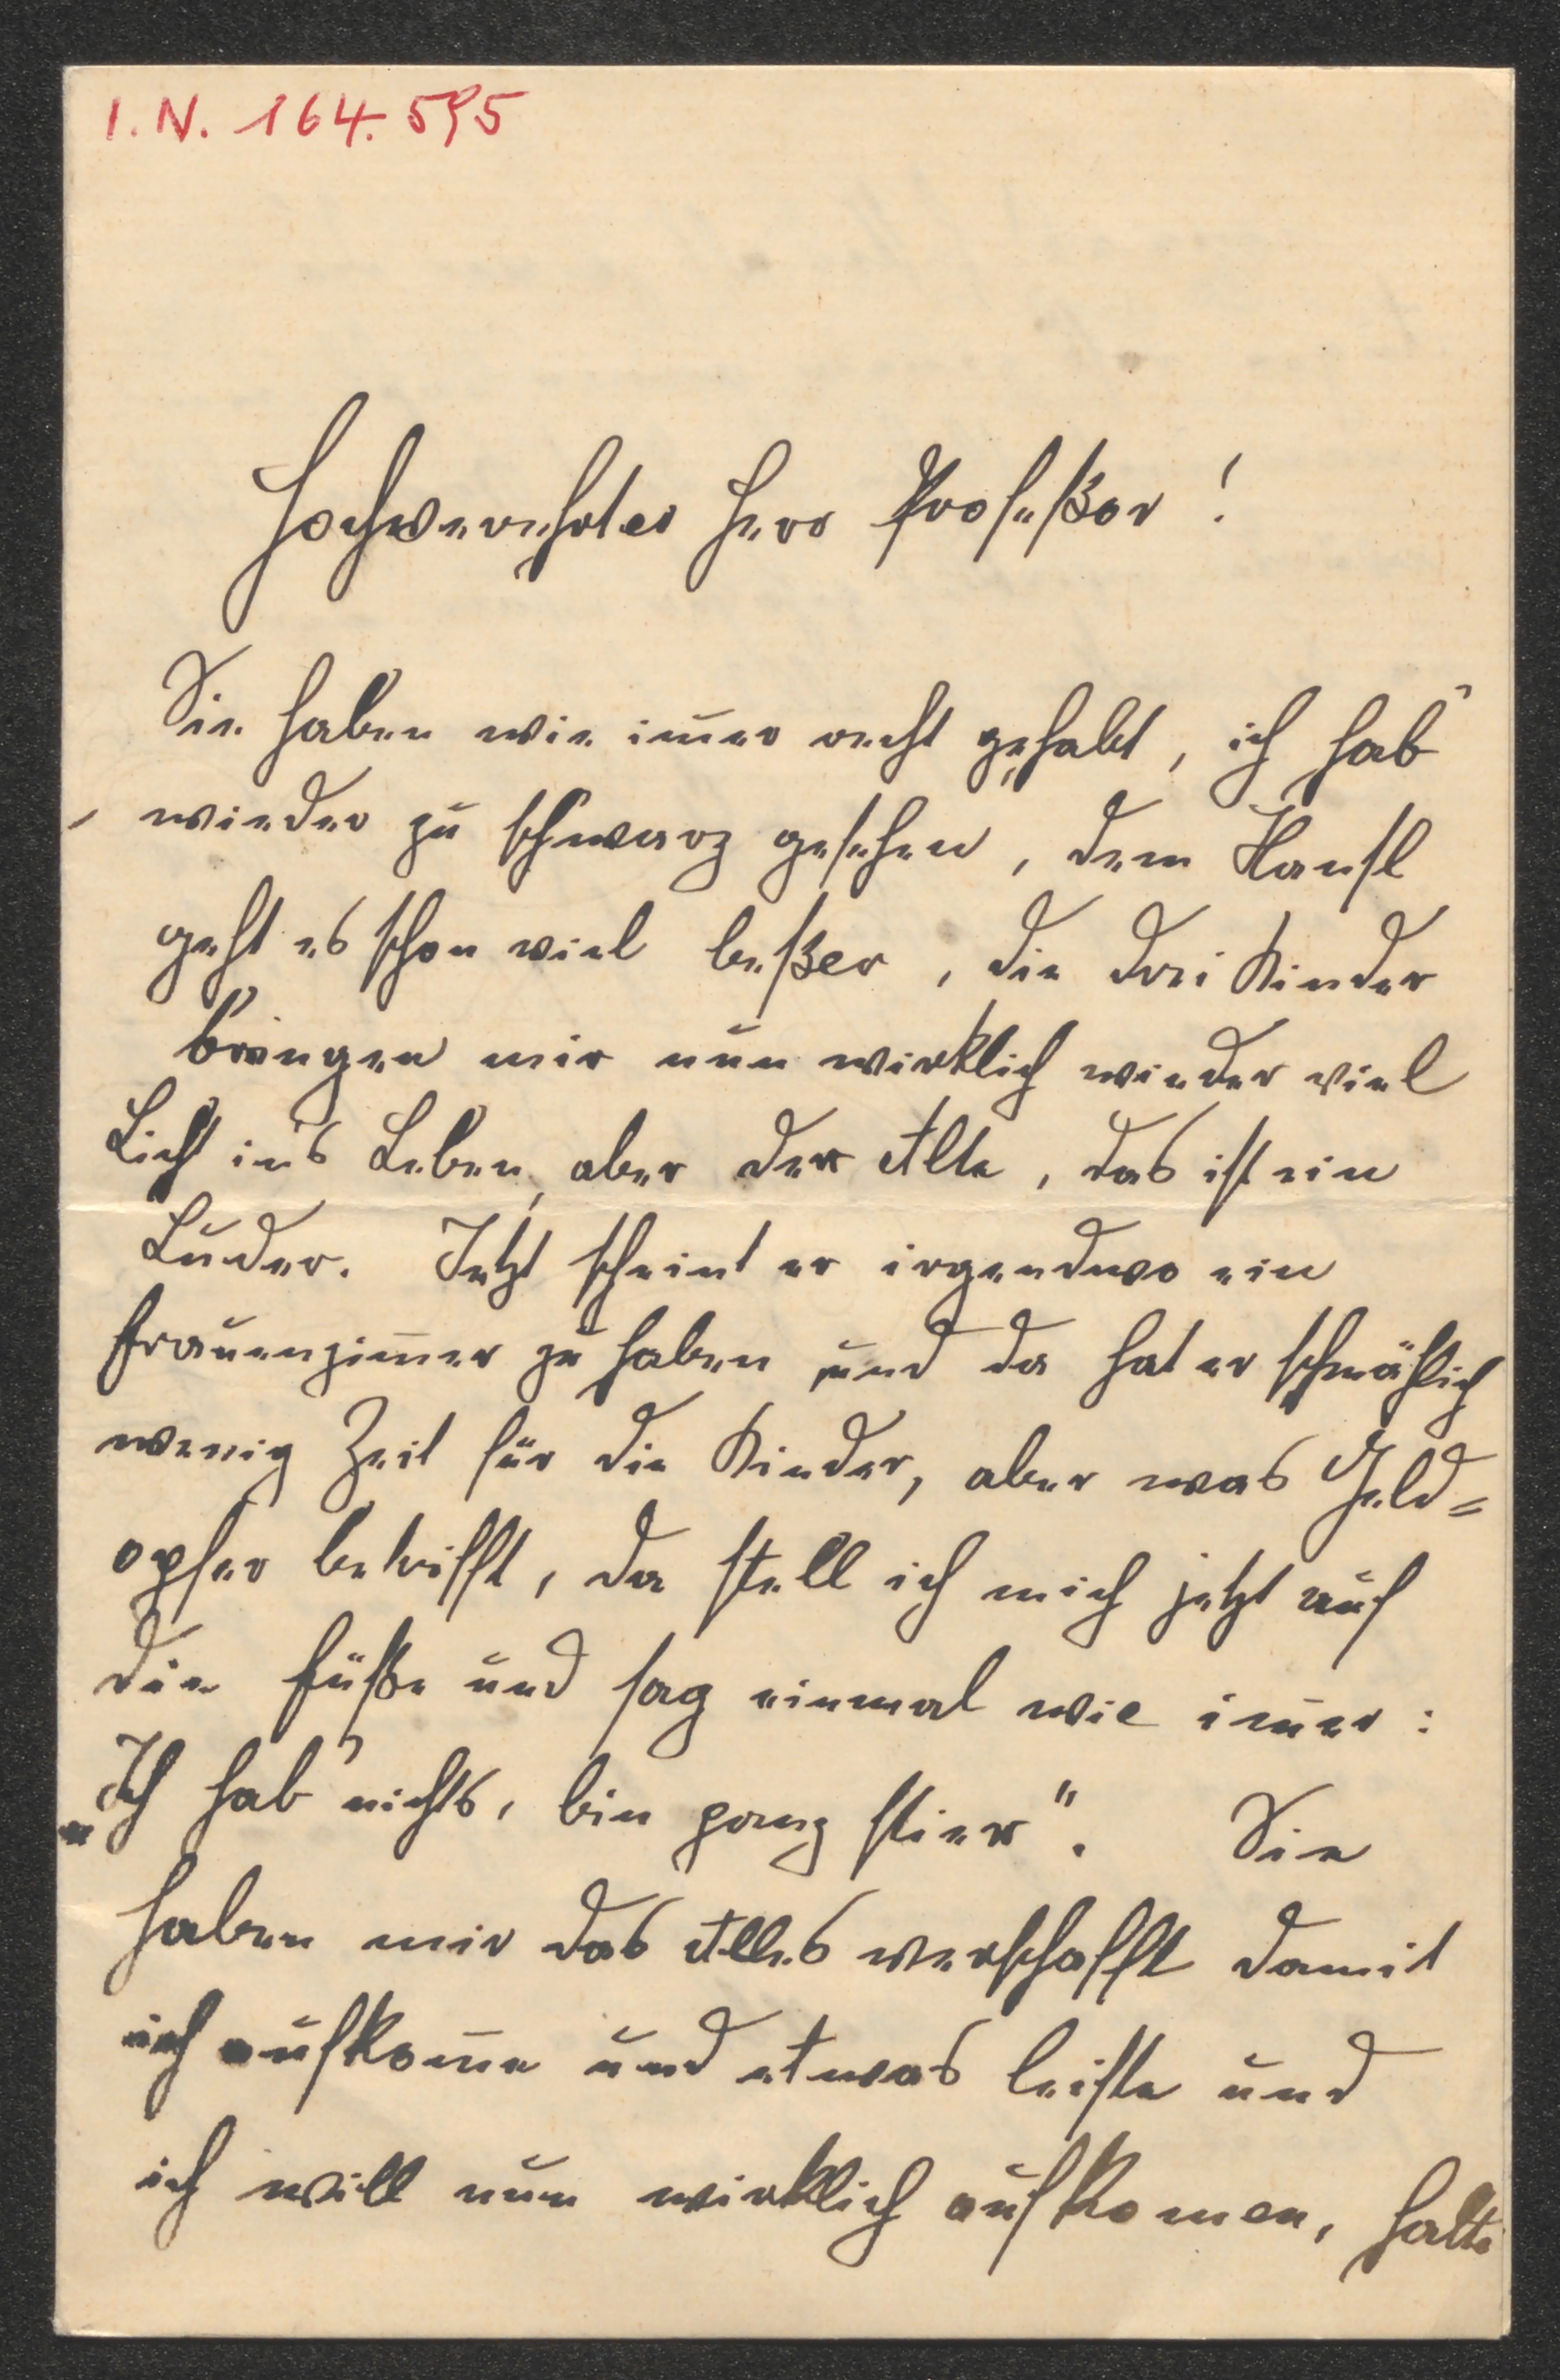 I. N. 164.595
Hochverehrter Herr Profeßor!
Sie haben wie im̅er recht gehabt, ich hab'
wieder zu schwarz gesehen, dem Hansl
geht es schon viel beßer, die drei Kinder
bringen mir nun wirklich wieder viel
Licht in's Leben, aber der Alte, das ist ein
Luder. Jetzt scheint er irgendwo ein
Frauenzim̅er zu haben und da hat er schmählich
wenig Zeit für die Kinder, aber was Geld=
opfer betrifft, da stell ich mich jetzt auf
die Füße und sag einmal wie im̅er:
„Ich hab' nichts, bin ganz stier".   Sie
haben mir das Alles verschafft damit
ich aufkom̅e und etwas leiste und
ich will nun wirklich aufkomen, halte